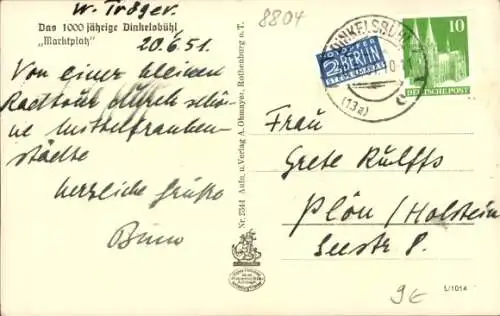 W. Tröger.
8804
Das 1000 jährige Dinkelsbühl
„Marktplatz“
20.6.51.
Von einer kleinen
Radtour durch schö-
ne mittelfranken-
städte
herzliche Grüße
Nr. 2544 Aufn. u. Verlag A. Ohmayer, Rothenburg o. T.
DINKELSBÜHL
(13a)
NOTOPFER
2 BERLIN
STEUERMARKE
10
DEUTSCHE POST
Frau
Grete Kulffs
Plön/Holstein
Seestr. 8.
9€
L/1014